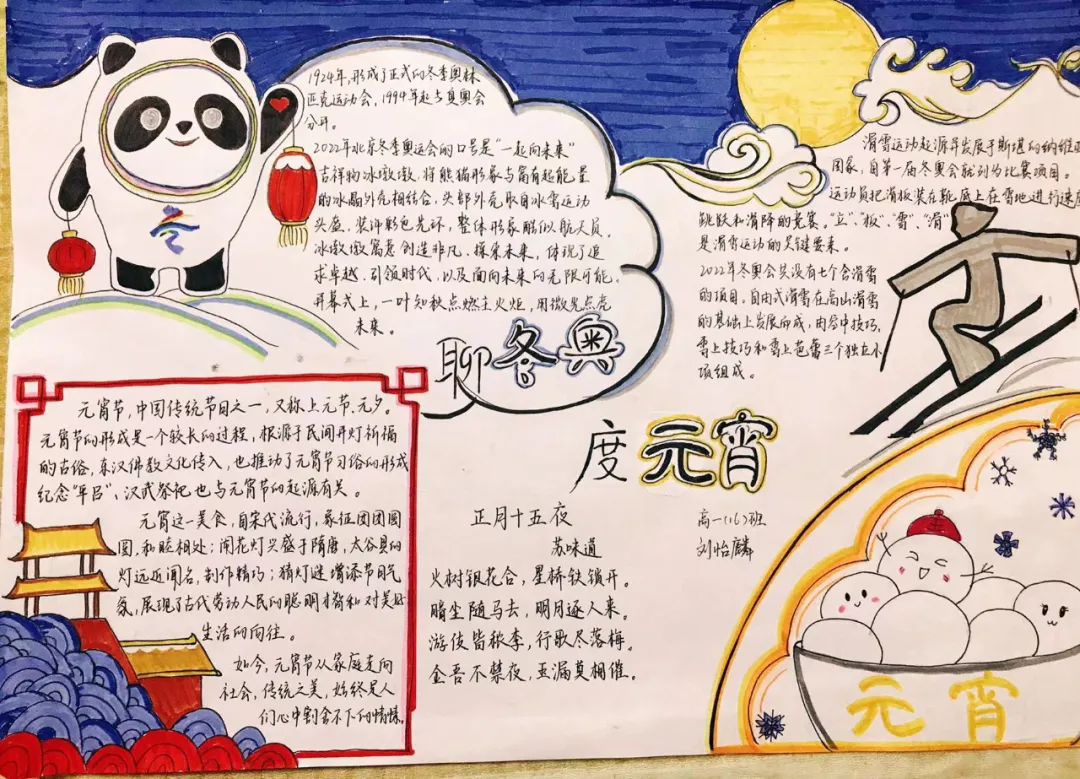 1924年,形成了正式的冬季奥林
匹克运动会,1994年起与夏奥会
分开。
2022年北京冬季奥运会的口号是"一起向未来"
吉祥物冰墩墩,将熊猫形象与富有超能量
的冰晶外壳相结合,头部外壳取自冰雪运动
头盔,装饰彩色光环,整体形象酷似航天员。
冰墩墩寓意创造非凡、探索未来,体现了追
求卓越、引领时代,以及面向未来的无限可能。
开幕式上,一叶知秋点燃主火炬,用微光点亮
未来。
滑雪运动起源与发展于斯堪的纳维亚
国家,自第一届冬奥会就列为比赛项目。
运动员把滑板装在靴底上在雪地进行速度
跳跃和滑降的竞赛。"立"、"板"、"雪"、"滑"
是滑雪运动的关键要素。
2022年冬奥会共设有七个含滑雪
的项目,自由式滑雪在高山滑雪
的基础上发展而成,由空中技巧,
雪上技巧和雪上芭蕾三个独立小
项组成。
聊冬奥
度元宵
元宵节,中国传统节日之一,又称上元节、元夕。
元宵节的形成是一个较长的过程,根源于民间开灯祈福
的古俗,东汉佛教文化传入,也推动了元宵节习俗的形成
纪念"平吕",汉武祭祀也与元宵节的起源有关。
元宵这一美食,自宋代流行,象征团团圆
圆,和睦相处;闹花灯兴盛于隋唐,太谷县的
灯远近闻名,制作精巧;猜灯谜增添节日气
氛,展现了古代劳动人民的聪明才智和对美好
生活的向往。
如今,元宵节从家庭走向
社会,传统之美,始终是人
们心中割舍不下的情愫。
正月十五夜
苏味道
火树银花合,星桥铁锁开。
暗尘随马去,明月逐人来。
游伎皆秾李,行歌尽落梅。
金吾不禁夜,玉漏莫相催。
高一(16)班
刘怡麟
元宵